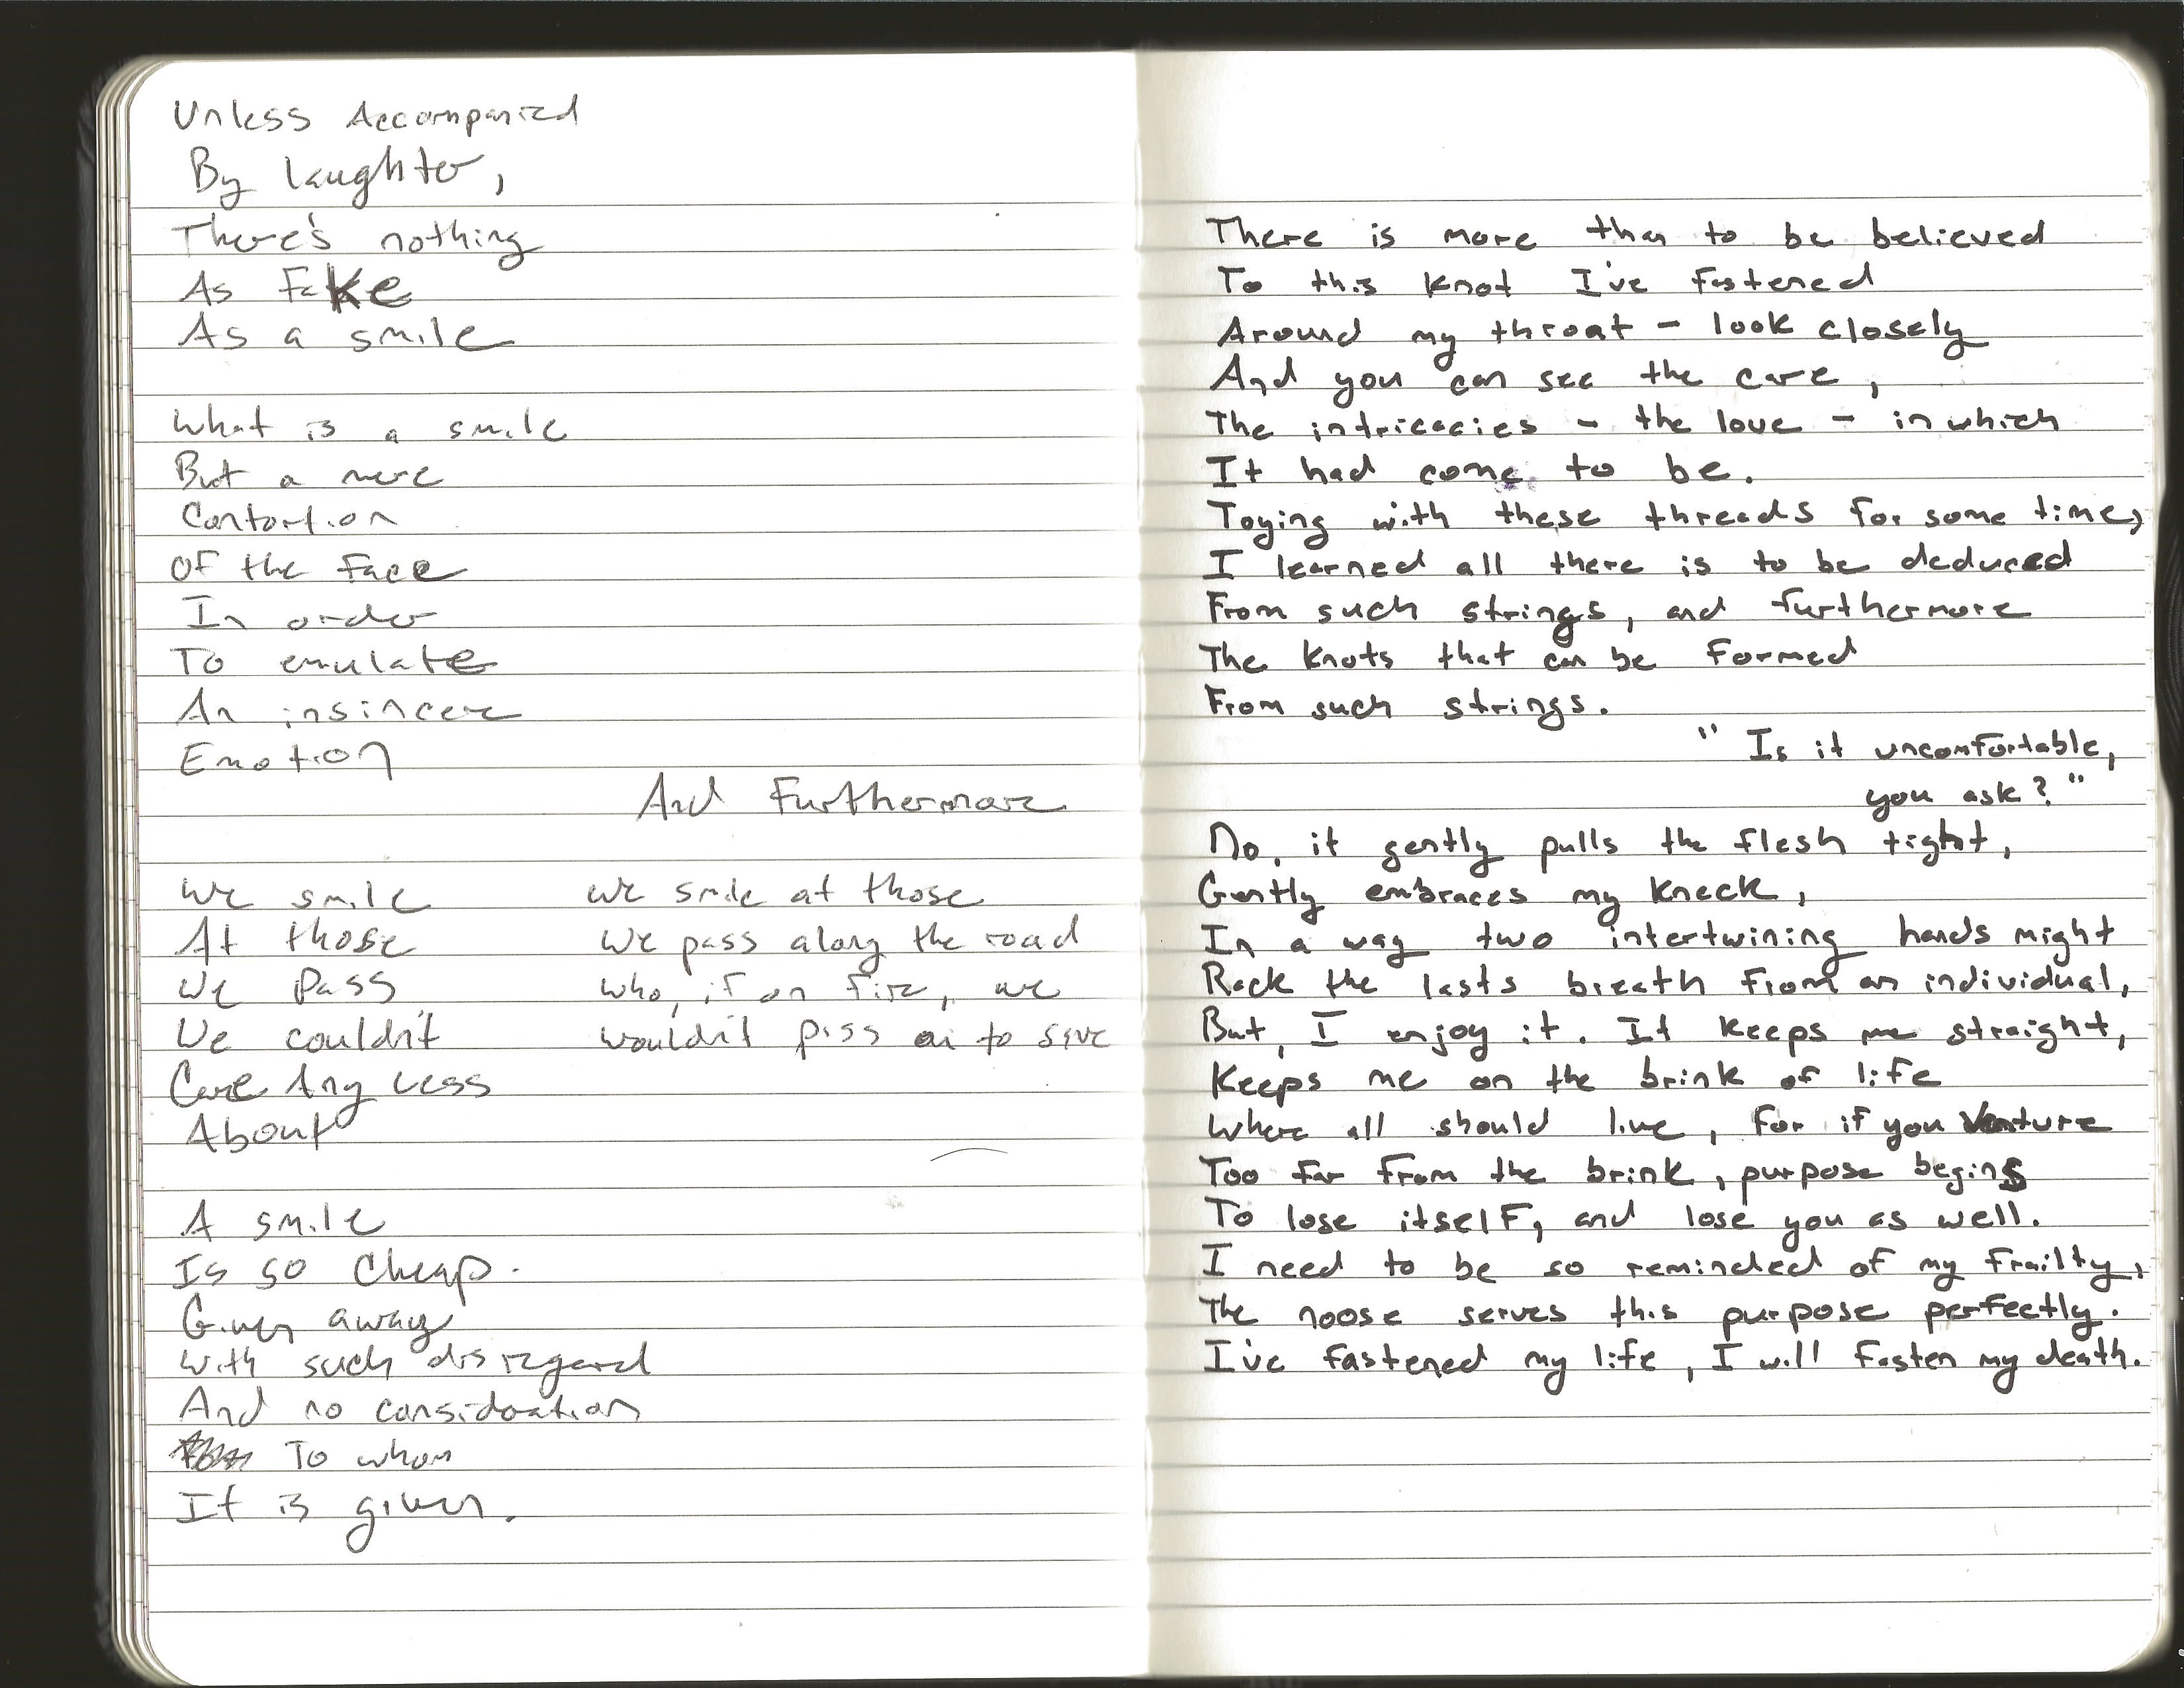 Unless Accompanied
By laughter,
There's nothing
As Fake
As a smile
What is a smile
But a mere
Contortion
Of the Face
In order
To emulate
An insincere
Emotion
And Furthermore
We smile
At those
We Pass
We couldn't
Care Any Less
About
We smile at those
We pass along the road
Who, if on fire, we
Wouldn't piss on to save
A smile
Is so Cheap.
Given away
With such disregard
And no consideration
To whom
It is given.
There is more than to be believed
To this knot I've fastened
Around my throat - look closely
And you can see the care,
The intricacies - the love - in which
It had come to be.
Toying with these threads for some time,
I learned all there is to be deduced
From such strings, and furthermore
The knots that can be formed
From such strings.
" Is it uncomfortable,
you ask? "
No, it gently pulls the flesh tight,
Gently embraces my kneck,
In a way two intertwining hands might
Rack the lasts breath from an individual,
But, I enjoy it. It keeps me straight,
Keeps me on the brink of life
Where all should live, for if you venture
Too far from the brink, purpose begins
To lose itself, and lose you as well.
I need to be so reminded of my frailty,
The noose serves this purpose perfectly.
I've fastened my life, I will fasten my death.